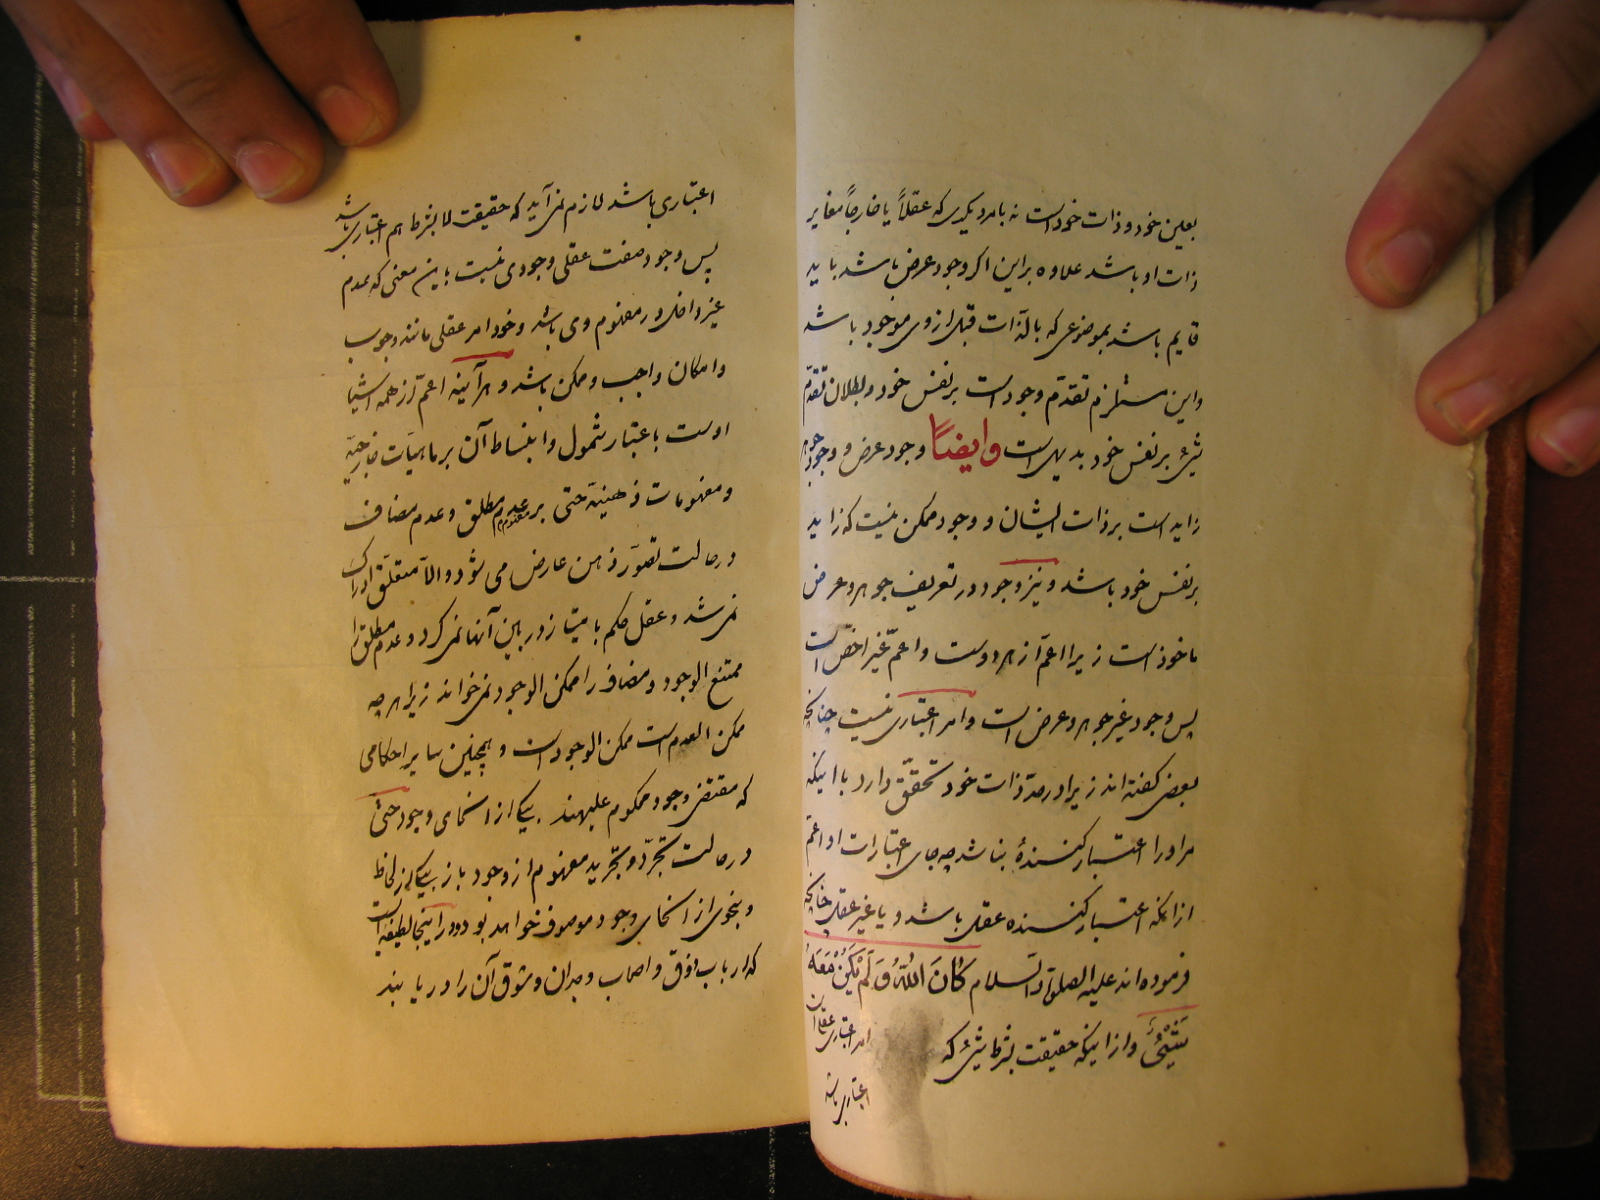 بعین خود و ذات خود است نه بامر دیگری که عقلاً یا خارجاً مغایر
ذات او باشد علاوه براین اکر وجود عرض باشد باید
قایم باشد بموضوعی که بالذات قبل از وی موجود باشد
واین مستلزم تقدّم وجود است بر نفس خود و بطلان تقدّم
شیٔ بر نفس خود بدیهی است وایضاً وجود عرض و وجود جوهر
زاید است بر ذات ایشان و وجود ممکن نیست که زاید
بر نفس خود باشد و نیز وجود در تعریف جوهر و عرض
ماخوذ است زیرا اعم از هر دوست و اعم غیر اخصّ است
پس وجود غیر جوهر و عرض است و امر اعتباری نیست چنانکه
بعضی کفته اند زیرا در حدّ ذات خود تحقّق دارد با اینکه
مر او را اعتبار کنندۀ نباشد چه جای اعتبارات او اعم
از انکه اعتبار کننده عقل باشد و یا غیر عقل چنانکه
فرموده اند علیه الصلوة والسلام کَانَ اللّٰهُ وَلَمْ یَکُنْ مَعَهُ
شَیْئٌ و از اینکه حقیقت بشرط شیٔ که
امر اعتباری عقلی
اعتباری باشد
اعتباری باشد لازم نمی آید که حقیقت لا بشرط هم اعتباری باشد
پس وجود صفت عقلی وجودی نیست باین معنی که عدم
غیر داخل در مفهوم وی باشد و خود امر عقلی مانند وجوب
و امکان واجب و ممکن باشد و هر آینه اعمّ از همه اشیا
اوست باعتبار شمول و انبساط آن بر ماهیّات خارجیّه
و مفهومات ذهنیّه حتی بر مفهوم عدم مطلق و عدم مضاف
در حالت تصوّر ذهن عارض می شود و الّا متعلّق ادراک
نمی شد و عقل حکم بامتیاز در بین آنها نمی کرد و عدم مطلق را
ممتنع الوجود و مضاف را ممکن الوجود نمی خواند زیرا هر چه
ممکن العدم است ممکن الوجود است و همچنین سایر احکامی
که مقتضی وجود محکوم علیهند بیکی از انحای وجود حتی
در حالت تجرّد و تجرید مفهوم از وجود باز بیکی از لحاظ
و بنحوی از انحای وجود موصوف خواهد بود و در اینجا لطیفه است
که ارباب ذوق و اصحاب وجدان و شوق آن را دریابند